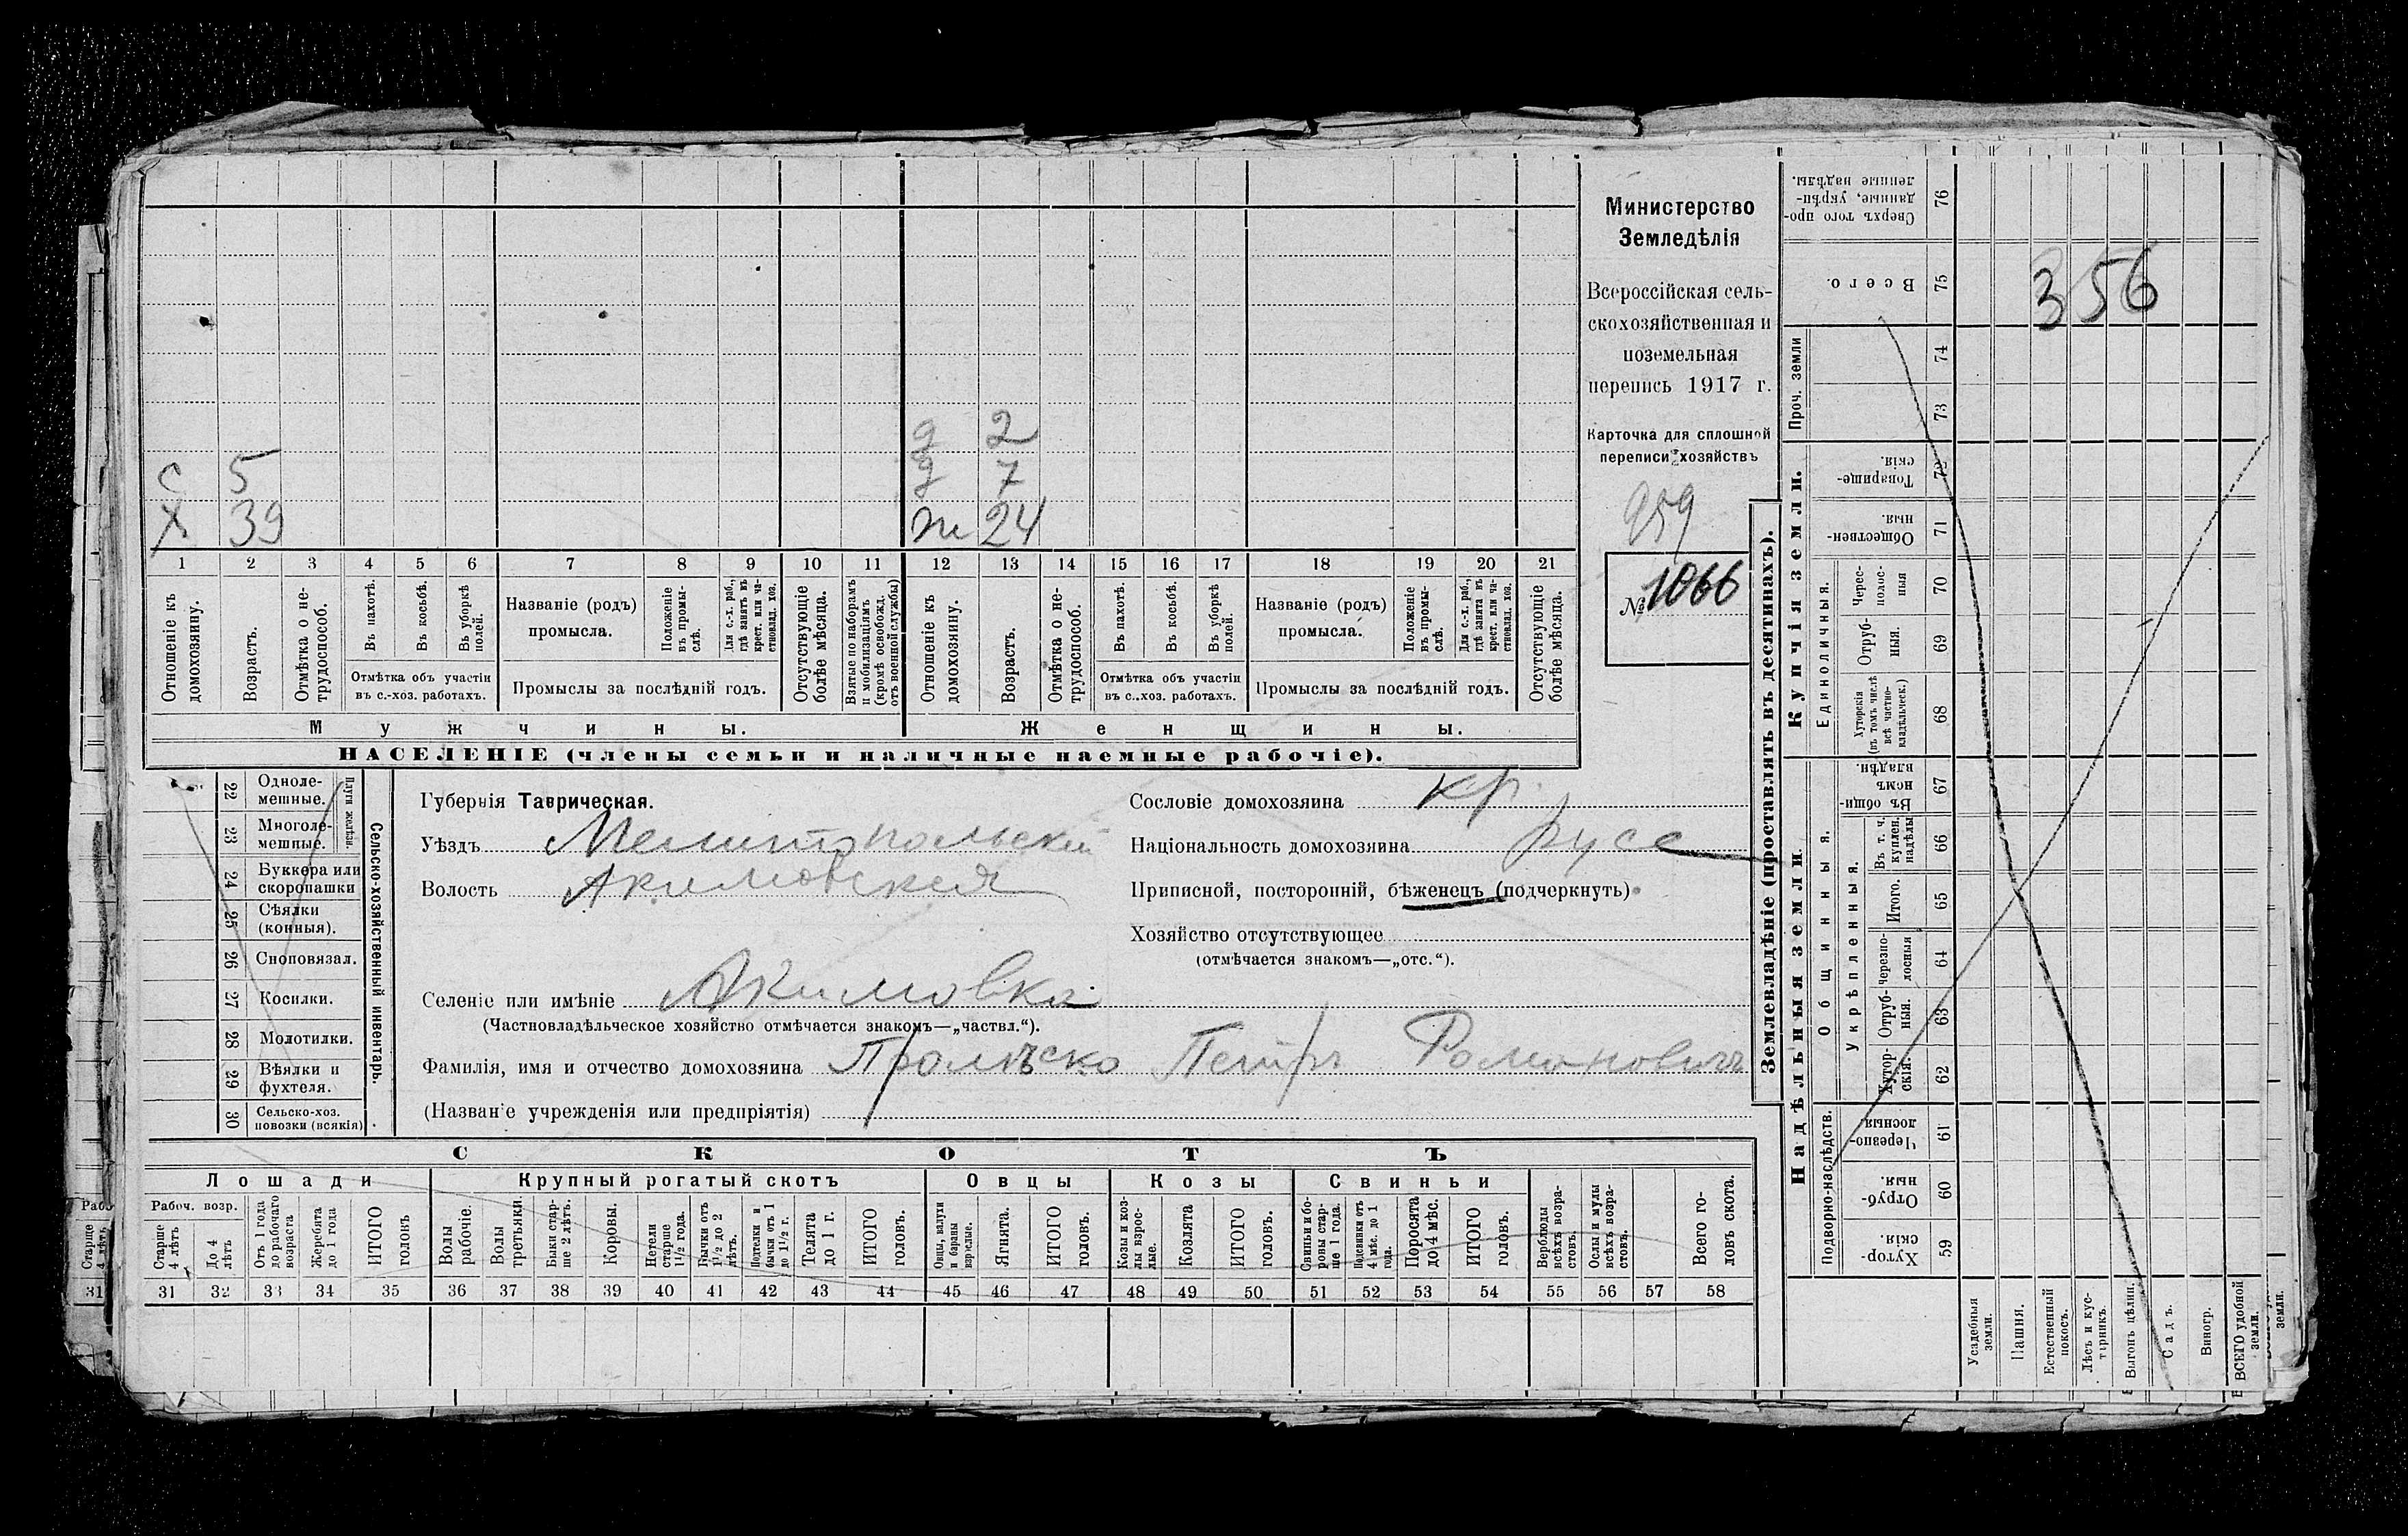 с 5
х 39
д 2
д 7
ж 24
1 2 3 4 5 6 7 8 9 10 11 12 13 14 15 16 17 18 19 20 21
Отношеніе къ домохозяину.
Возрастъ.
Отмѣтка о не-
трудоспособ.
Въ пахотѣ.
Въ косьбѣ.
Въ уборкѣ
полей.
Отмѣтка объ участіи
въ с.-хоз. работахъ.
Названіе (родъ)
промысла.
Положеніе
въ промы-
слѣ.
Для с.-х. раб.,
гдѣ занятъ въ
крест. или ча-
стновлад. хоз.
Промыслы за послѣдній годъ.
Отсутствующіе
болѣе мѣсяца.
Взятые по наборамъ
и мобилизаціямъ
(кромѣ освобожд.
отъ военной службы)
Отношеніе къ
домохозяину.
Возрастъ.
Отмѣтка о не-
трудоспособ.
Въ пахотѣ.
Въ косьбѣ.
Въ уборкѣ
полей.
Отмѣтка объ участіи
въ с.-хоз. работахъ.
Названіе (родъ)
промысла.
Положеніе
въ промы-
слѣ.
Для с.-х. раб.,
гдѣ занята въ
крест. или ча-
стновлад. хоз.
Промыслы за послѣдній годъ.
Отсутствующіе
болѣе мѣсяца.
Мужчины.
Женщины.
НАСЕЛЕНІЕ (члены семьи и наличные наемные рабочіе).
Министерство
Земледѣлія
Всероссійская сель-
скохозяйственная и
поземельная
перепись 1917 г.
Карточка для сплошной
переписи хозяйствъ
959
№ 1066
22 Одноле-
мешные.
23 Многоле-
мешные.
Плуги желѣзн.
24 Буккера или
скоропашки
25 Сѣялки
(конныя).
26 Сноповязал.
27 Косилки.
28 Молотилки.
29 Вѣялки и
фухтеля.
30 Сельско-хоз.
повозки (всякія)
Сельско-хозяйственный инвентарь.
Губернія Таврическая.
Уѣздъ Мелитопольскій
Волость Акимовская
Сословіе домохозяина кр.
Національность домохозяина русс
Приписной, посторонній, бѣженецъ (подчеркнуть)
Хозяйство отсутствующее
(отмѣчается знакомъ—„отс.“).
Селеніе или имѣніе Акимовка
(Частновладѣльческое хозяйство отмѣчается знакомъ—„частвл.“).
Фамилія, имя и отчество домохозяина Петръ Романовичъ
(Названіе учрежденія или предпріятія)
СКОТЪ
Лошади
Крупный рогатый скотъ
Овцы
Козы
Свиньи
Рабоч. возр.
Старше
4 лѣтъ
До 4
лѣтъ
Отъ 1 года
до рабочаго
возраста
Жеребята
до 1 года
ИТОГО
головъ
Волы
рабочіе.
Волы
третьяки.
Быки стар-
ше 2 лѣтъ.
Коровы.
Нетели
старше
1½ года.
Бычки отъ
1½ до 2
лѣтъ.
Подтелки и
бычки отъ 1
до 1½ г.
Телята
до 1 г.
ИТОГО
головъ.
Овцы, валухи
и бараны
взрослые.
Ягнята.
ИТОГО
головъ.
Козы и коз-
лы взрос-
лые.
Козлята
ИТОГО
головъ.
Свиньи и бо-
ровы стар-
ше 1 года.
Подсвинки отъ
4 мѣс. до 1
года.
Поросята
до 4 мѣс.
ИТОГО
головъ.
Верблюды
всѣхъ возра-
стовъ.
Ослы и мулы
всѣхъ возра-
стовъ.
Всего го-
ловъ скота.
31 32 33 34 35 36 37 38 39 40 41 42 43 44 45 46 47 48 49 50 51 52 53 54 55 56 57 58
Землевладѣніе (проставлять въ десятинахъ).
Купчія земли.
Надѣльныя земли
Сверхъ того про-
данные, укрѣп-
ленные надѣлы. 76
Всего. 75
356
Проч. земли
74
73
Товарище-
скія. 72
Обществен-
ныя. 71
Единоличныя.
Черес-
полос-
ныя 70
Отруб-
ныя. 69
Хуторскія
(въ томъ числѣ
всѣ частно-
владѣльческ.) 68
Общинныя.
Въ общи-
номъ
владѣн. 67
Укрѣпленныя.
Въ т. ч.
куплен.
надѣлы 66
Итого. 65
Черезпо-
лосныя 64
Отруб-
ныя. 63
Хутор-
скія. 62
Подворно-наслѣдств.
Черезпо-
лосныя. 61
Отруб-
ныя. 60
Хутор-
скія. 59
Усадебныя
земли.
Пашня.
Естественный
покосъ.
Лѣсъ и кус-
тарникъ.
Выгонъ цѣлин.
Садъ.
Виногр.
ВСЕГО удобной
земли.
земли.
Старше
4 лѣтъ
31